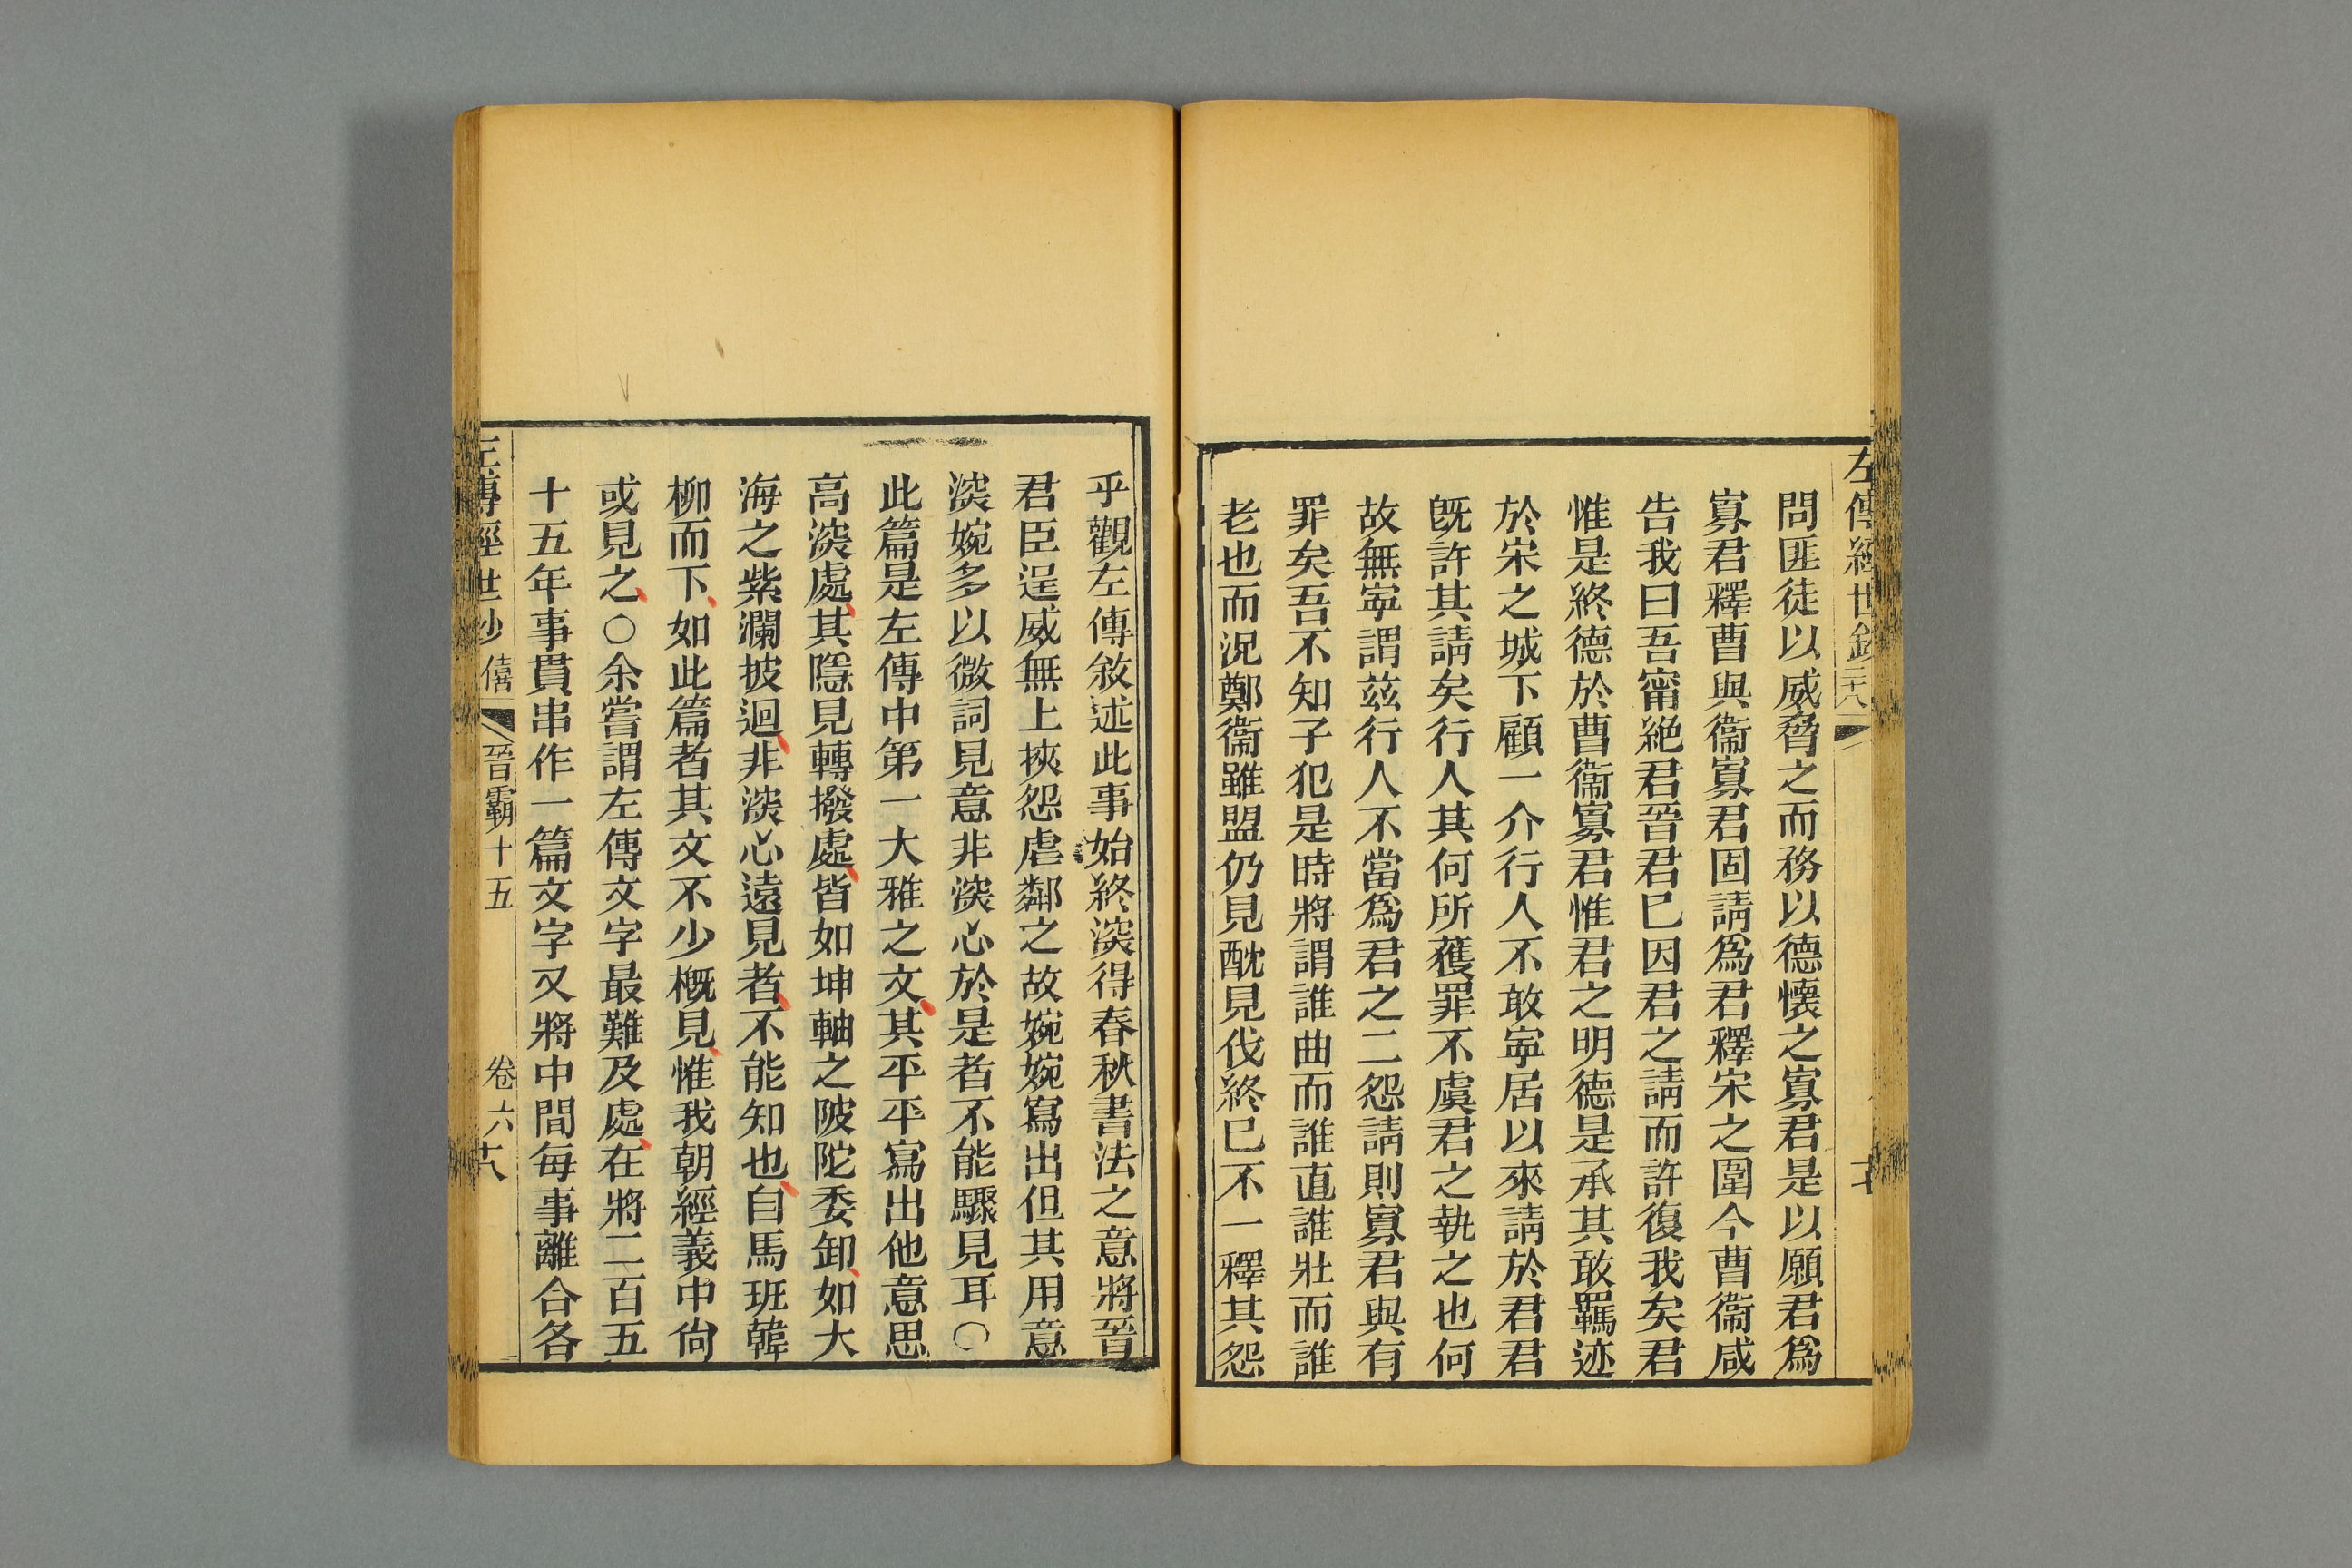 左傳經世鈔
問匪徒以威脅之而務以德懷之寡君是以願君爲
寡君釋曹與衞寡君固請爲君釋宋之圍今曹衞咸
告我曰吾甯絶君晉君已因君之請而許復我矣君
惟是終德於曹衞寡君惟君之明德是承其敢羈迹
於宋之城下顧一介行人不敢寧居以來請於君君
旣許其請矣行人其何所獲罪不虞君之執之也何
故無寧謂茲行人不當爲君之二怨請則寡君與有
罪矣吾不知子犯是時將謂誰曲而誰直誰壯而誰
老也而況鄭衞雖盟仍見酖見伐終已不一釋其怨
乎觀左傳敘述此事始終深得春秋書法之意將晉
君臣逞威無上挾怨虐鄰之故婉婉寫出但其用意
深婉多以微詞見意非深心於是者不能驟見耳〇
此篇是左傳中第一大雅之文其平平寫出他意思
高深處其隱見轉撥處皆如坤軸之陂陀委卸如大
海之紫瀾披迴非深心遠見者不能知也自馬班韓
柳而下如此篇者其文不少概見惟我朝經義中尙
或見之〇余嘗謂左傳文字最難及處在將二百五
十五年事貫串作一篇文字又將中間每事離合各
左傳經世鈔 僖 晉霸十五 卷六 十八